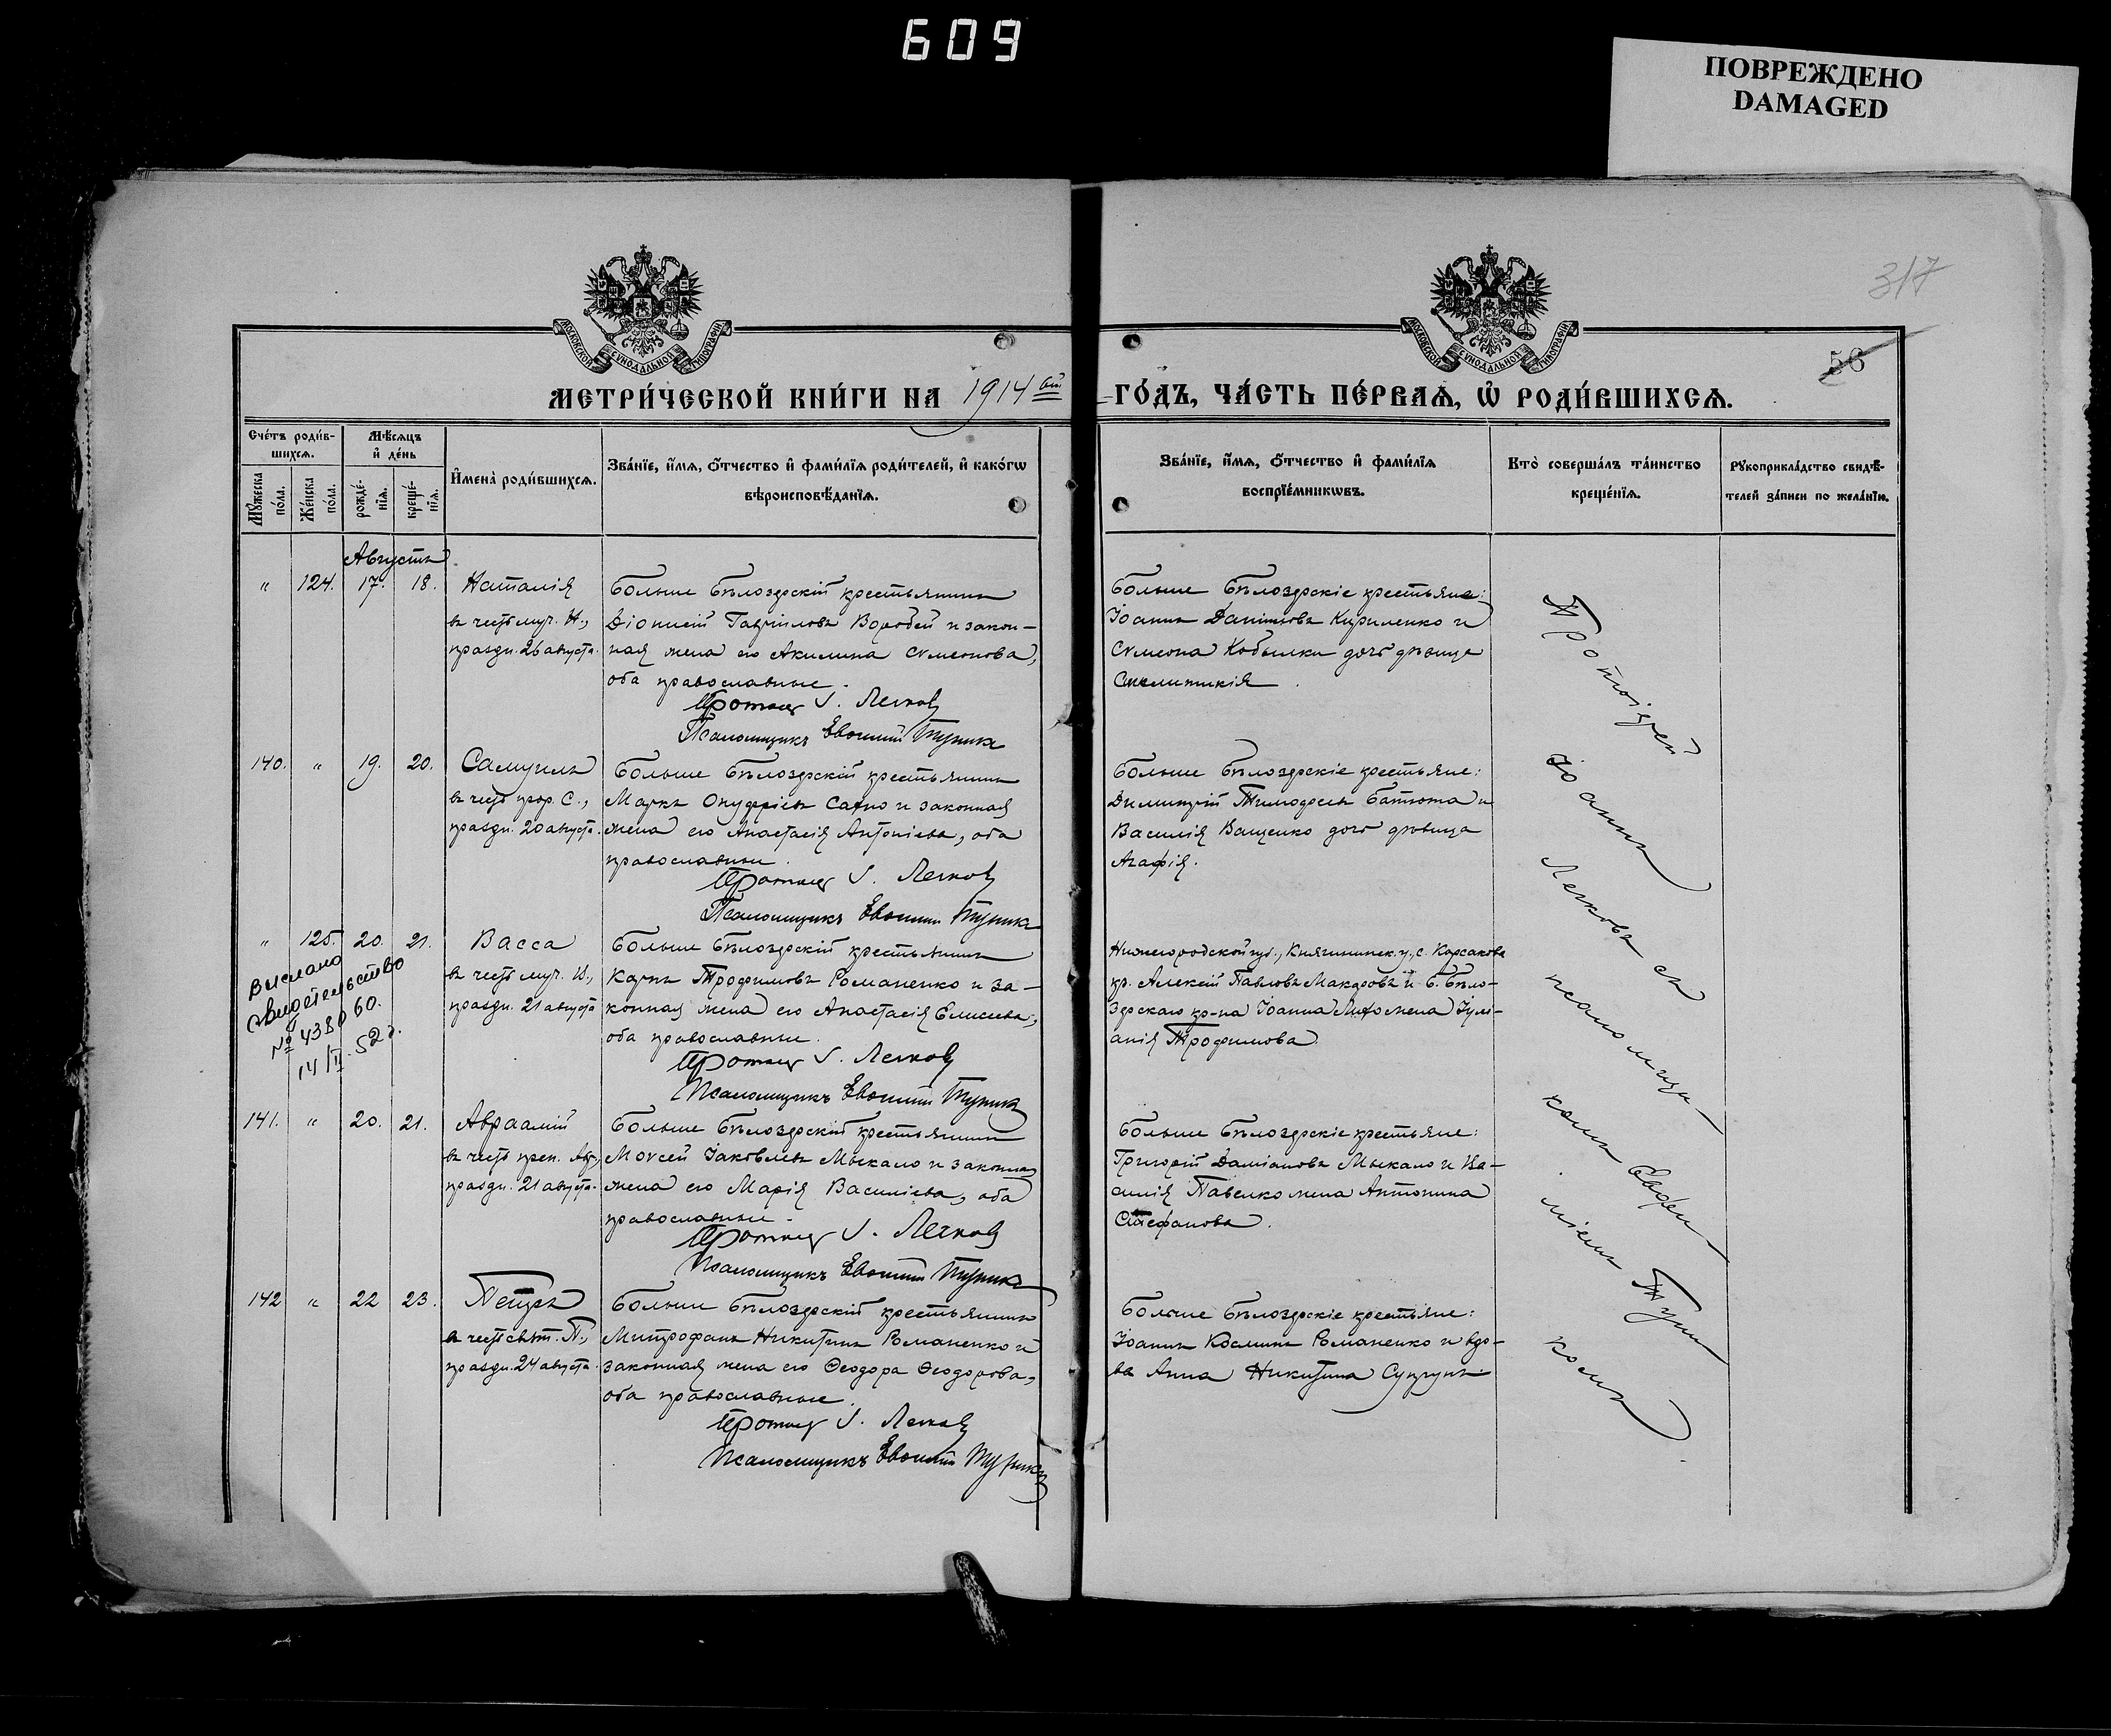 609
ПОВРЕЖДЕНО
DAMAGED
317
56
МОСКОВСКОЙ СѴНОДАЛЬНОЙ ТИПОГРАФІИ
МОСКОВСКОЙ СѴНОДАЛЬНОЙ ТИПОГРАФІИ
МЕТРИ́ЧЕСКОЙ КНИ́ГИ НА 1914 ый ГО́ДЪ, ЧА́СТЬ ПЕ́РВАѦ, Ѡ҆ РОДИ́ВШИХСѦ.
Сче́тъ роди́в-
шихсѧ.
Мꙋ́жеска по́ла.
Же́нска по́ла.
Мѣ́сѧцъ
и҆ де́нь
рожде́-
нїѧ.
креще́-
нїѧ.
И҆мена̀ роди́вшихсѧ.
Зва́нїе, и҆́мѧ, ѻ҆́тчество и҆ фами́лїѧ роди́телей, и҆ како́гѡ
вѣроисповѣ́данїѧ.
Зва́нїе, и҆́мѧ, ѻ҆́тчество и҆ фами́лїѧ
воспрїе́мникѡвъ.
Кто̀ соверша́лъ та́инство
креще́нїѧ.
Рꙋкоприкла́дство свидѣ́-
телей за́писи по жела́нїю.
Августъ
„ 124. 17. 18.
Наталія
въ честь муч. Н.,
праздн. 26 августа.
Больше Бѣлозерскій крестьянинъ
Діонисій Гавріиловъ Воробей и закон-
ная жена его Акилина Сѵмеонова,
оба православные.
Протоіер І. Легков
Псаломщикъ Евѳимій Туник
Больше Бѣлозерскіе крестьяне:
Іоаннъ Даніиловъ Кириленко и
Сѵмеона Кобылки дочь дѣвица
Сѵнклитикія.
140. „ 19. 20.
Самуилъ
въ честь прор. С.,
праздн. 20 августа.
Больше Бѣлозерскій крестьянинъ
Маркъ Онуфріевъ Сахно и законная
жена его Анастасія Антоніева, оба
православные.
Протоіер І. Легков
Псаломщикъ Евѳимій Туник
Больше Бѣлозерскіе крестьяне:
Димитрій Тимоѳеевъ Батюта и
Василія Ващенко дочь дѣвица
Агафія.
„ 125. 20. 21.
Выслано
свидетельство
№ 438060.
14/II-52 г.
Васса
въ честь муч. В.,
праздн. 21 августа
Больше Бѣлозерскій крестьянинъ
Карпъ Трофимовъ Романенко и за-
конная жена его Анастасія Елисеева,
оба православные.
Протоіер І. Легков
Псаломщикъ Евѳимій Туник
Нижегородской губ., Княгининск. у., с. Карсаково
кр. Алексій Павловъ Макаровъ и Б. Бѣло-
зерскаго кр-на Іоанна жена Іулі-
анія Трофимова.
141. „ 20. 21.
Авраамій
въ честь преп. Авр.,
праздн. 21 августа.
Больше Бѣлозерскій крестьянинъ
Моѵсей Іаковлевъ Мыкало и законная
жена его Марія Василіева, оба
православные.
Протоіер І. Легков
Псаломщикъ Евѳимій Туник
Больше Бѣлозерскіе крестьяне:
Григорій Даміановъ Мыкало и Ва-
силія Павелко жена Антонина
Стефанова.
142 „ 22 23.
Петръ
въ честь свят. П.,
праздн. 24 августа.
Больше Бѣлозерскій крестьянинъ
Митрофанъ Никитинъ Романенко и
законная жена его Ѳеодора Ѳеодорова,
оба православные.
Протоіер І. Легков
Псаломщикъ Евѳимій Туник
Больше Бѣлозерскіе крестьяне:
Іоаннъ Косминъ Романенко и вдо-
ва Анна Никитина Супрунъ
Протоіерей
Іоаннъ
Легковъ съ
псаломщи-
комъ Евфи-
міемъ Туни-
комъ.